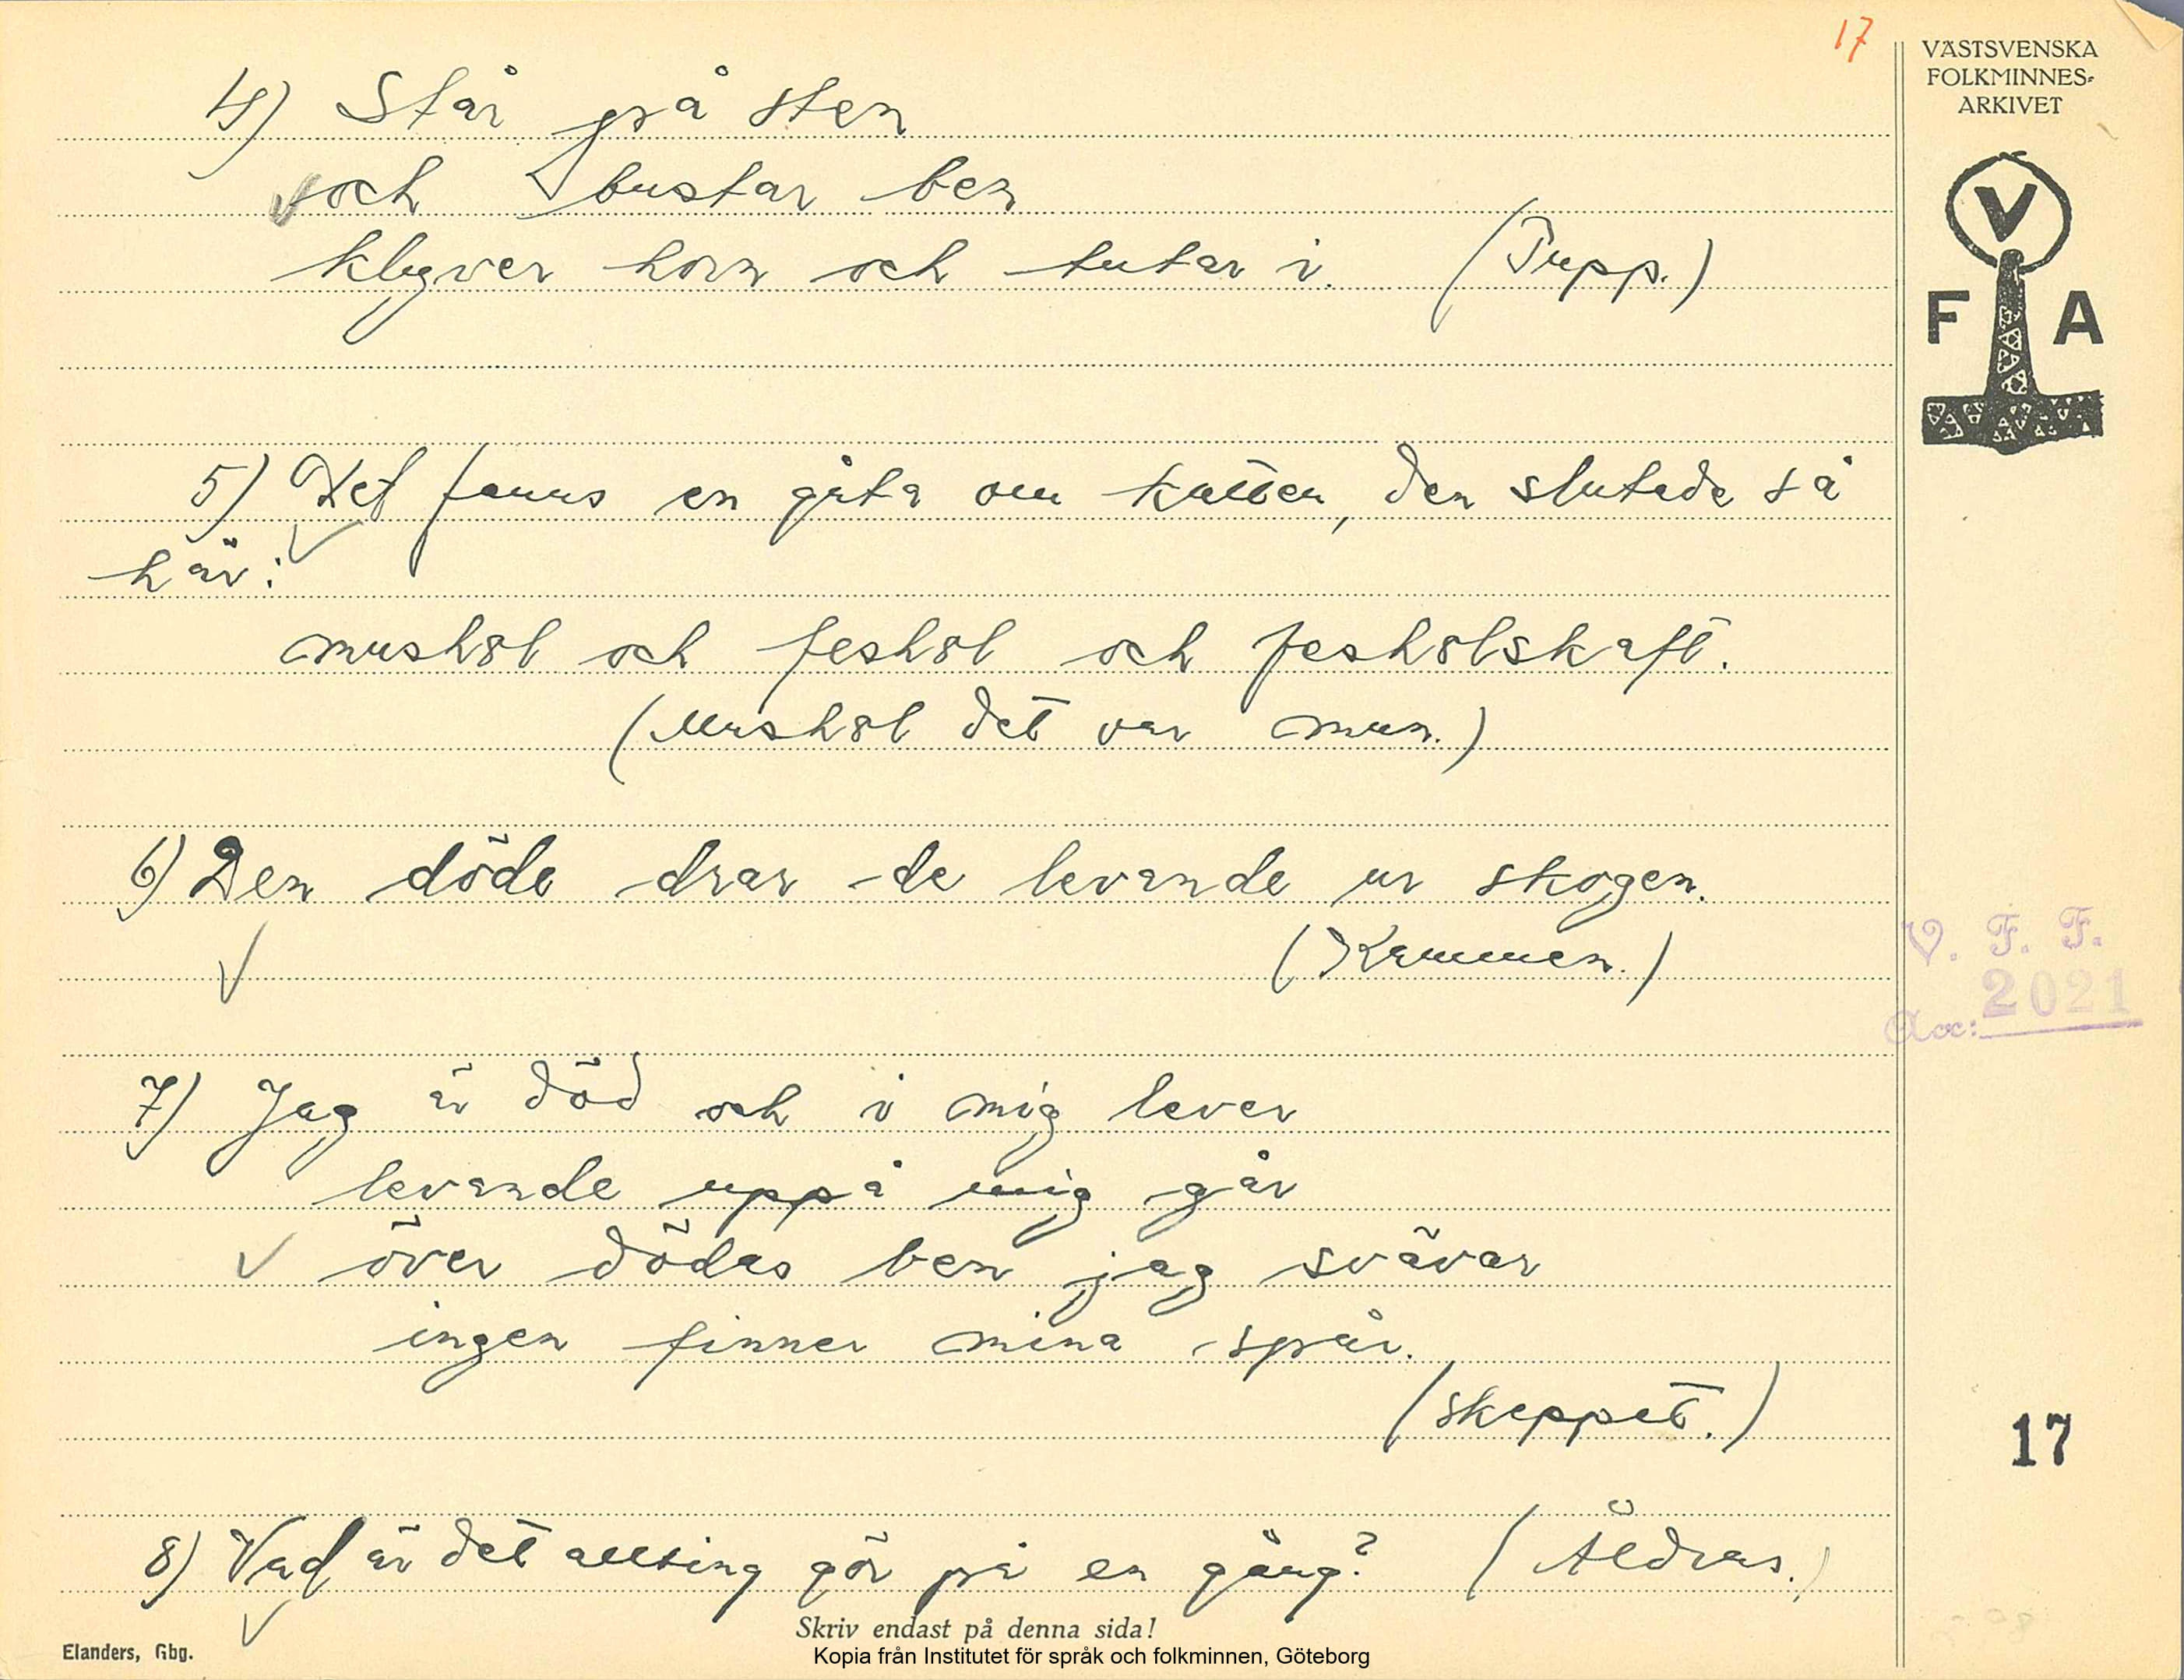 17
VÄSTSVENSKA
FOLKMINNES-
ARKIVET
V
F A
4) Står på sten
och bustar ben
klyver horn och tutar i. (Tupp.)
5) Det fanns en gåta om katten, den slutade så
här:
mushål och feshål och feshålskaft.
(Mushål det var mun.)
6) Den döde drar de levande ur skogen.
(Kammen.)
V. F. F.
Acc: 2021
7) Jag är död och i mig lever
levande uppå mig går
över dödas ben jag svävar
ingen finner mina spår.
(skeppet.)
17
8) Vad är det allting gör på en gång? (Åldras.)
Skriv endast på denna sida!
Elanders, Gbg.
Kopia från Institutet för språk och folkminnen, Göteborg